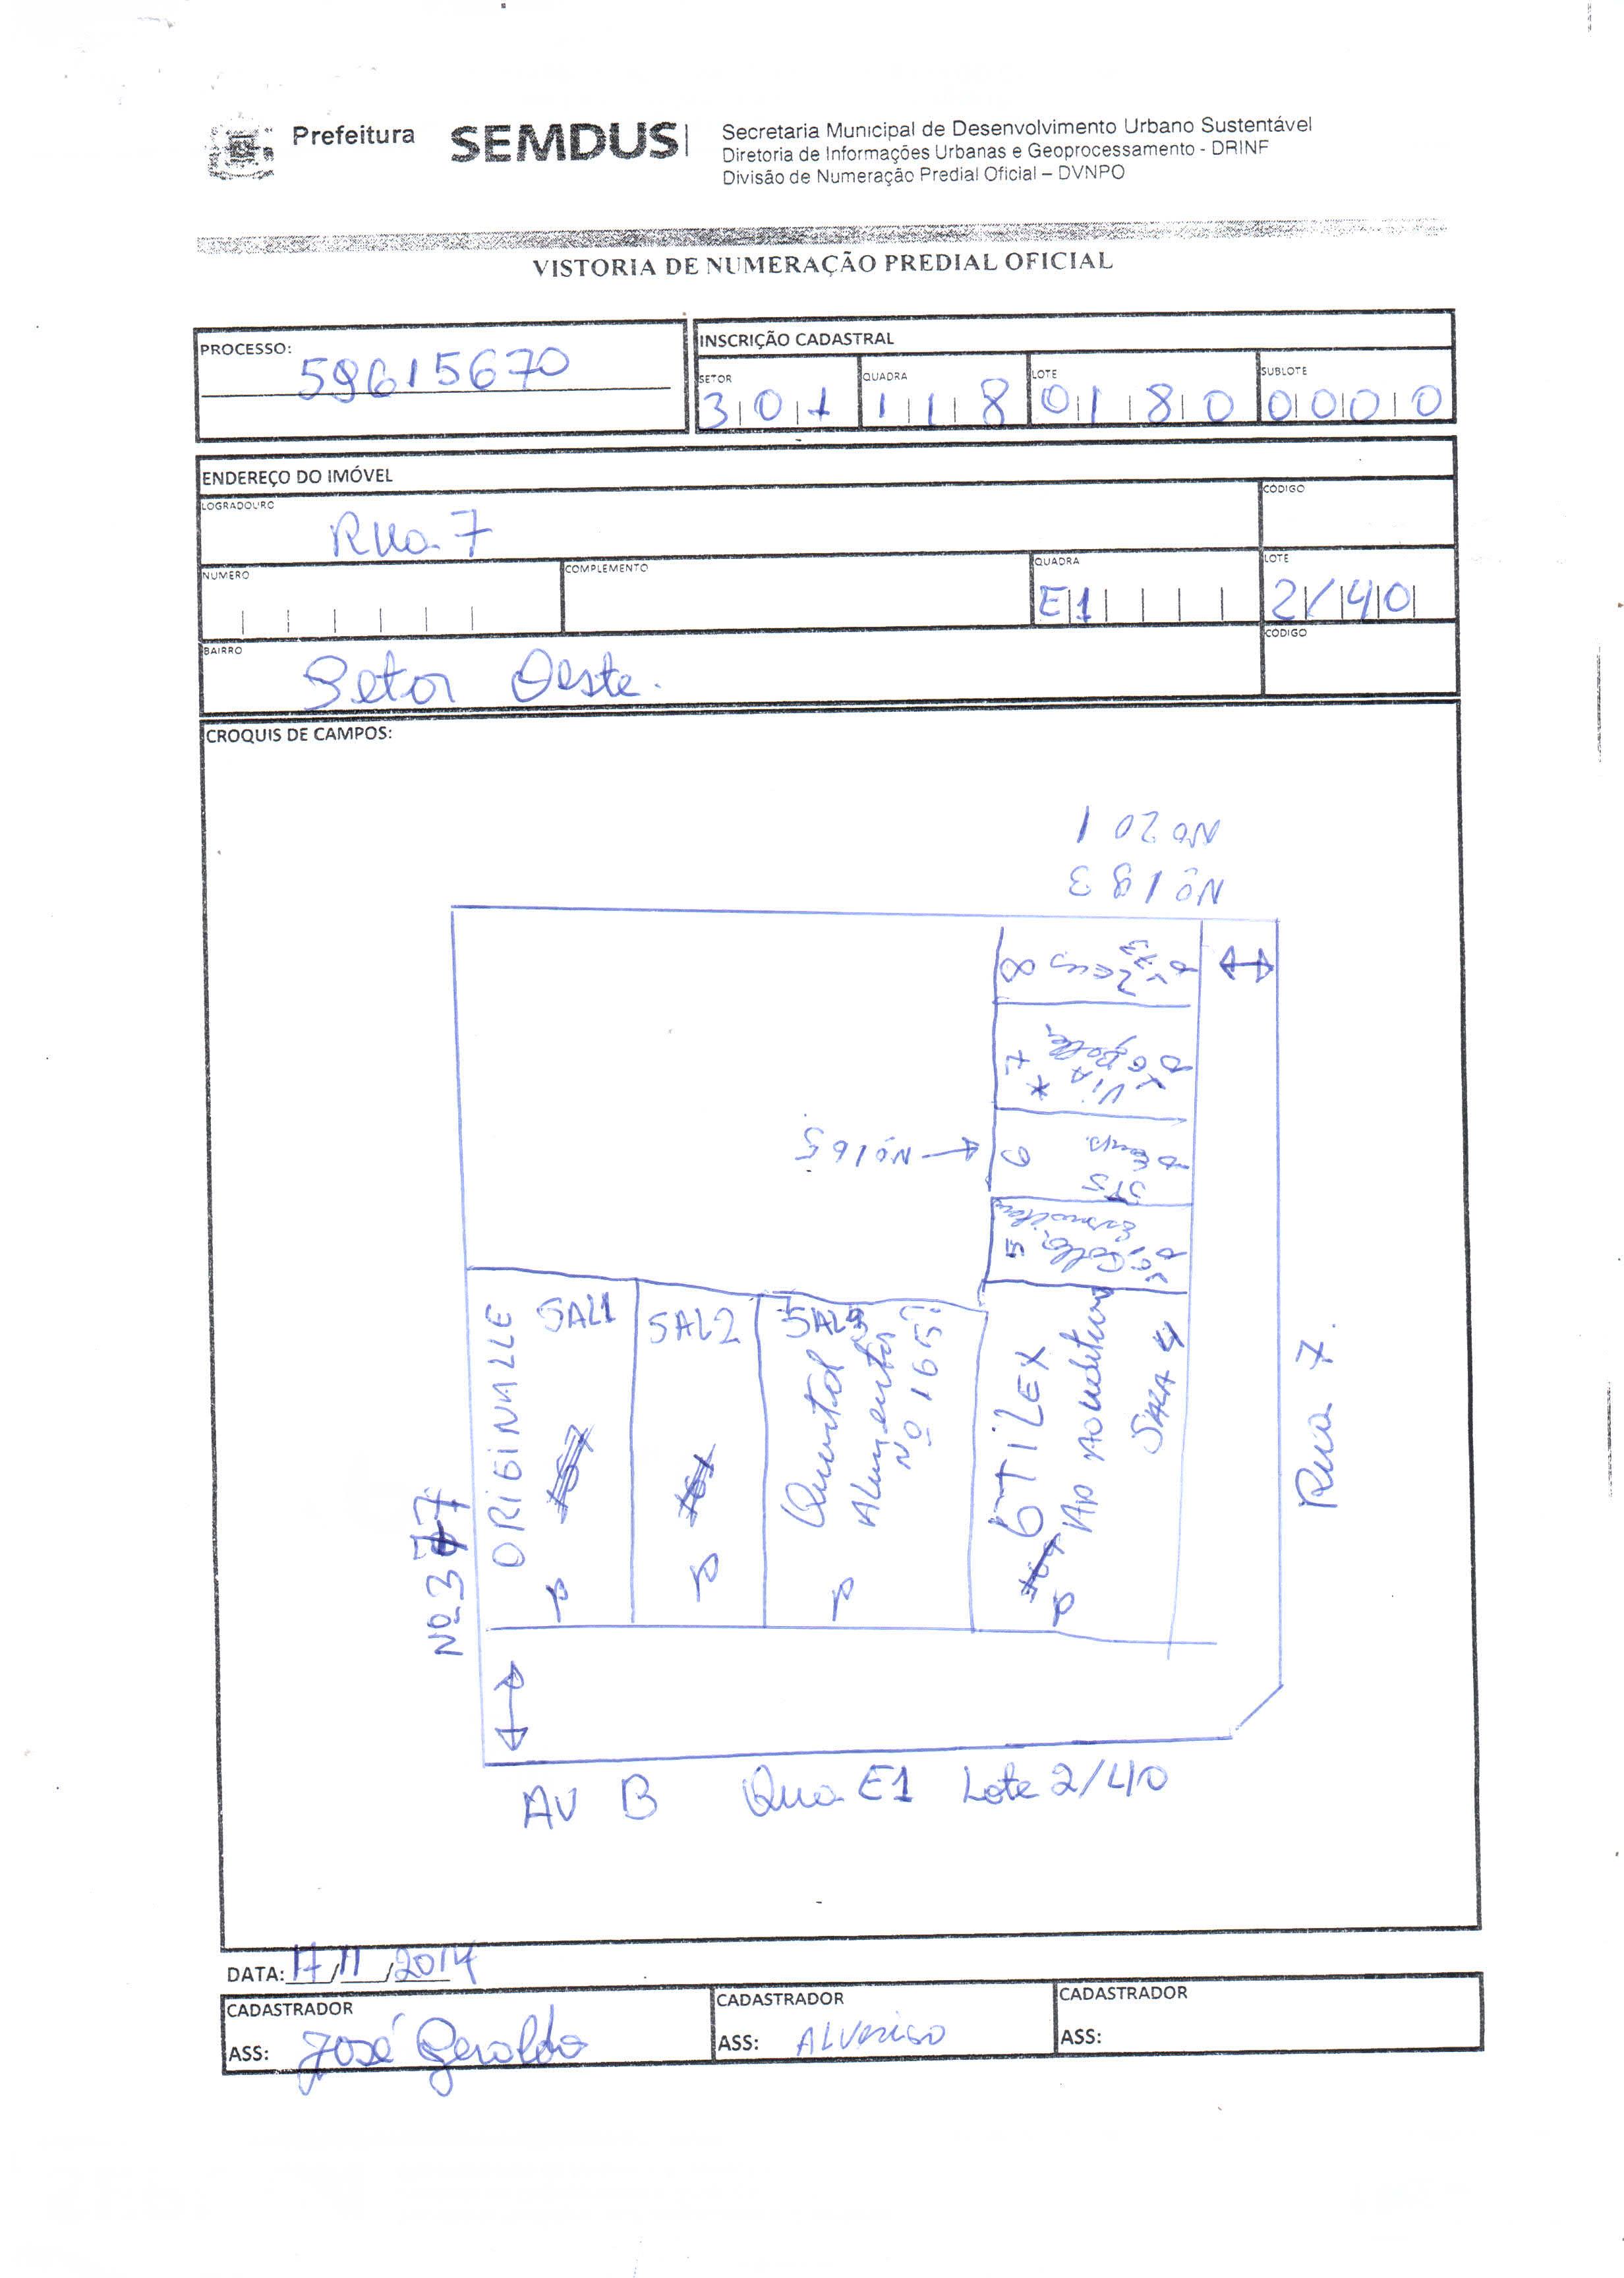 Prefeitura SEMDUS
Secretaria Municipal de Desenvolvimento Urbano Sustentável
Diretoria de Informações Urbanas e Geoprocessamento - DRINF
Divisão de Numeração Predial Oficial – DVNPO
VISTORIA DE NUMERAÇÃO PREDIAL OFICIAL
PROCESSO: 59615670
INSCRIÇÃO CADASTRAL
SETOR 301 QUADRA 118 LOTE 0180 SUBLOTE 0000
ENDEREÇO DO IMÓVEL
LOGRADOURO Rua 7 CÓDIGO
NUMERO COMPLEMENTO QUADRA E1 LOTE 2/40
BAIRRO Setor Oeste. CÓDIGO
CROQUIS DE CAMPOS:
Nº 201
Nº 183
8 Zeus
* 7 Via
6
Nº 165
5
ORIGINALLE SAL1
SAL2
SAL3
Quintal
Alimentos
Nº 165
OTILEX
SALA 4
Nº 377
Rua 7.
AV B Qua E1 Lote 2/40
DATA: 17/11/2014
CADASTRADOR
ASS: José Geraldo
CADASTRADOR
ASS:
CADASTRADOR
ASS: